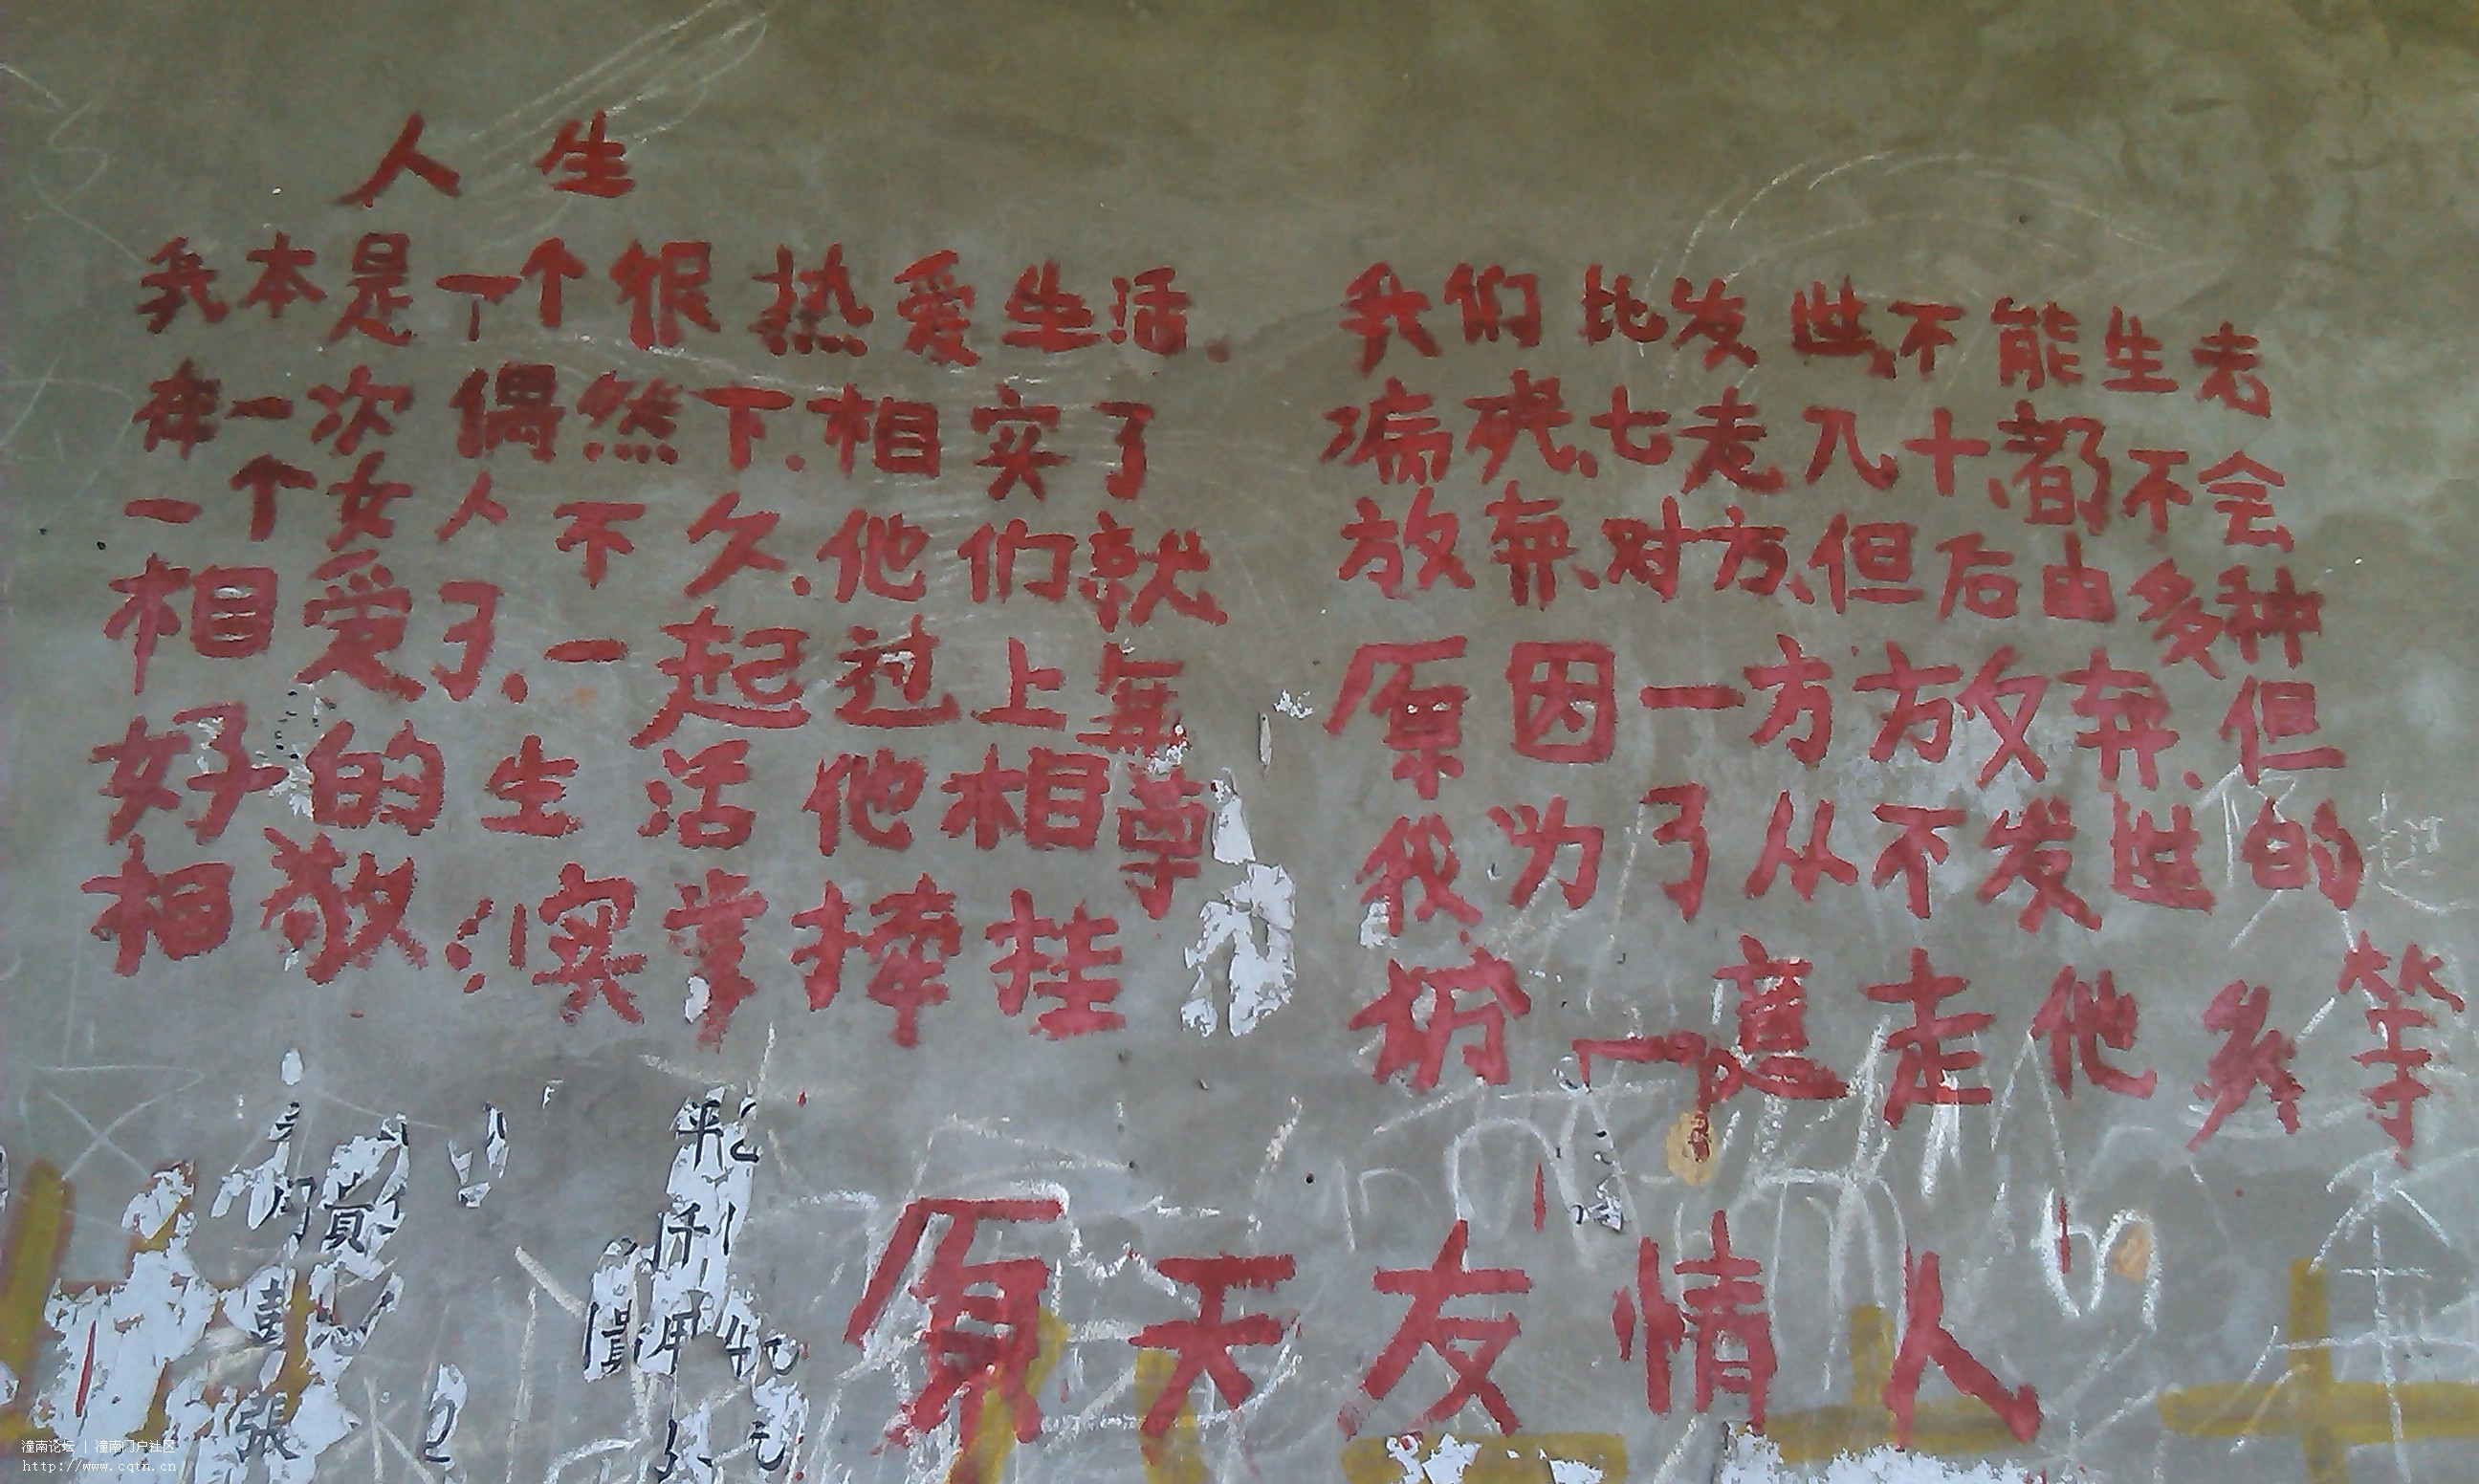 人生
我本是一个很热爱生活.
在一次偶然下.相实了
一个女人不久.他们就
相爱了.一起过上每
好的生活他相尊
相敬 实掌捧挂
我们比发逝.不能生老
病死.七老八十.都不会
放弃.对方.但后由多种
原因一方方放弃.但
我为了从不发逝的
走他乡等
原天友情人
張
潼南论坛 | 潼南门户社区
http://www.cqtn.cn